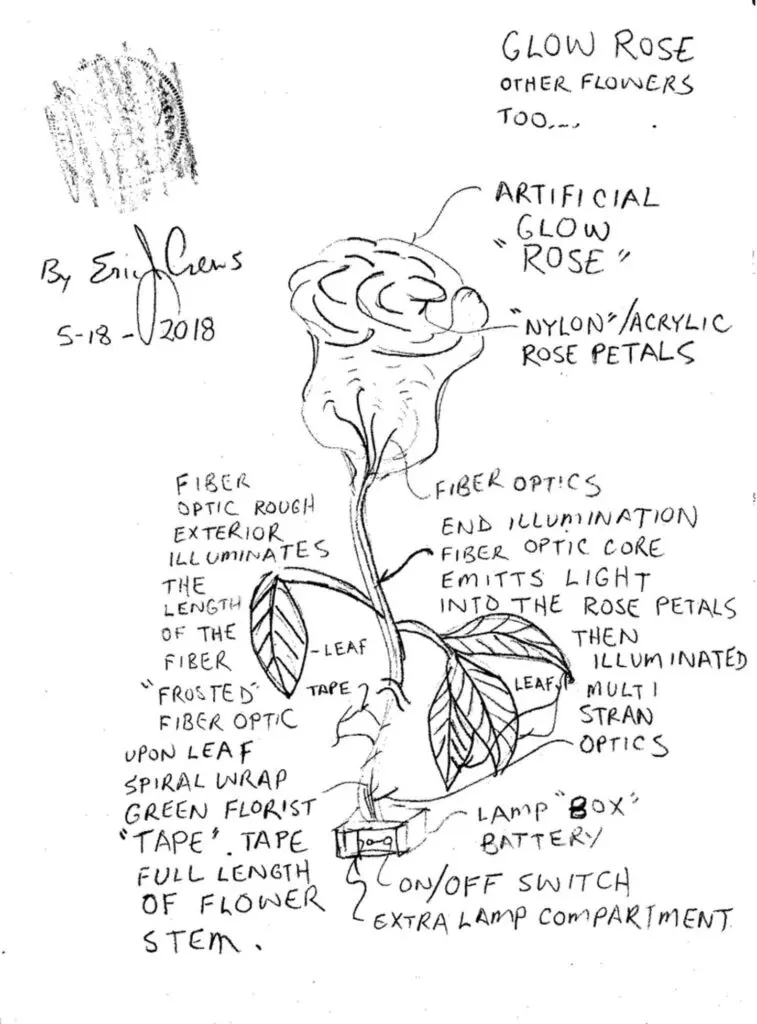 GLOW ROSE
OTHER FLOWERS
TOO....
By Eric J Crews
5-18-2018
ARTIFICIAL
GLOW
"ROSE"
"NYLON"/ACRYLIC
ROSE PETALS
FIBER OPTICS
END ILLUMINATION
FIBER OPTIC CORE
EMITTS LIGHT
INTO THE ROSE PETALS
THEN
ILLUMINATED
MULTI
STRAN
OPTICS
FIBER
OPTIC ROUGH
EXTERIOR
ILLUMINATES
THE
LENGTH
OF THE
FIBER
"FROSTED"
FIBER OPTIC
UPON LEAF
SPIRAL WRAP
GREEN FLORIST
"TAPE". TAPE
FULL LENGTH
OF FLOWER
STEM.
LEAF
TAPE
LEAF
LAMP "BOX"
BATTERY
ON/OFF SWITCH
EXTRA LAMP COMPARTMENT